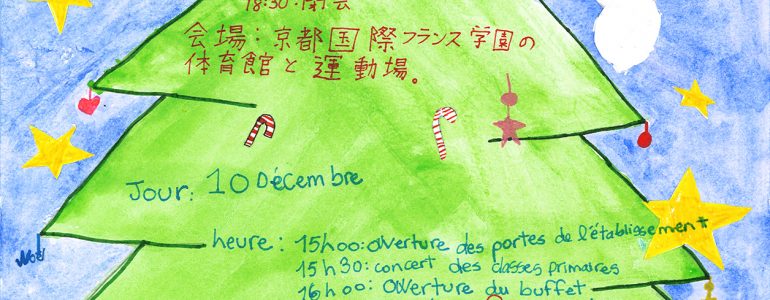 18:30:閉会
会場:京都国際フランス学園の
体育館と運動場。
Jour: 10 Décembre
heure: 15h00: Ouverture des portes de l'établissement
15h30: concert des classes primaires
16h00: Ouverture du buffet
Noël